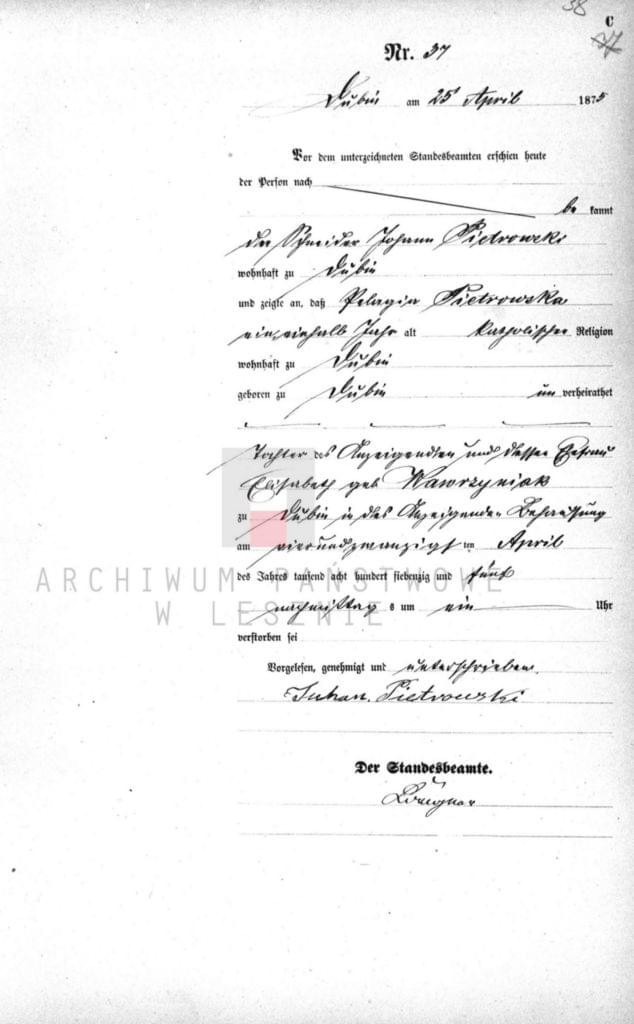 38
C
37
Nr. 37
Dubin am 25 April 1875
Vor dem unterzeichneten Standesbeamten erschien heute
der Person nach
be kannt
der Schneider Johann Pietrowski
wohnhaft zu Dubin
und zeigte an, daß Pelagia Pietrowska
ein einhalb Jahr alt katholischer Religion
wohnhaft zu Dubin
geboren zu Dubin un verheirathet
Tochter des Anzeigenden und dessen Ehefrau
Elisabeth geb Wawrzyniak
zu Dubin in des Anzeigenden Behausung
am vierundzwanzigs ten April
des Jahres tausend acht hundert siebenzig und fünf
nachmittag s um ein Uhr
verstorben sei
Vorgelesen, genehmigt und unterschrieben.
Pietrowski
Der Standesbeamte.
ARCHIWUM PAŃSTWOWE
W LESZNIE